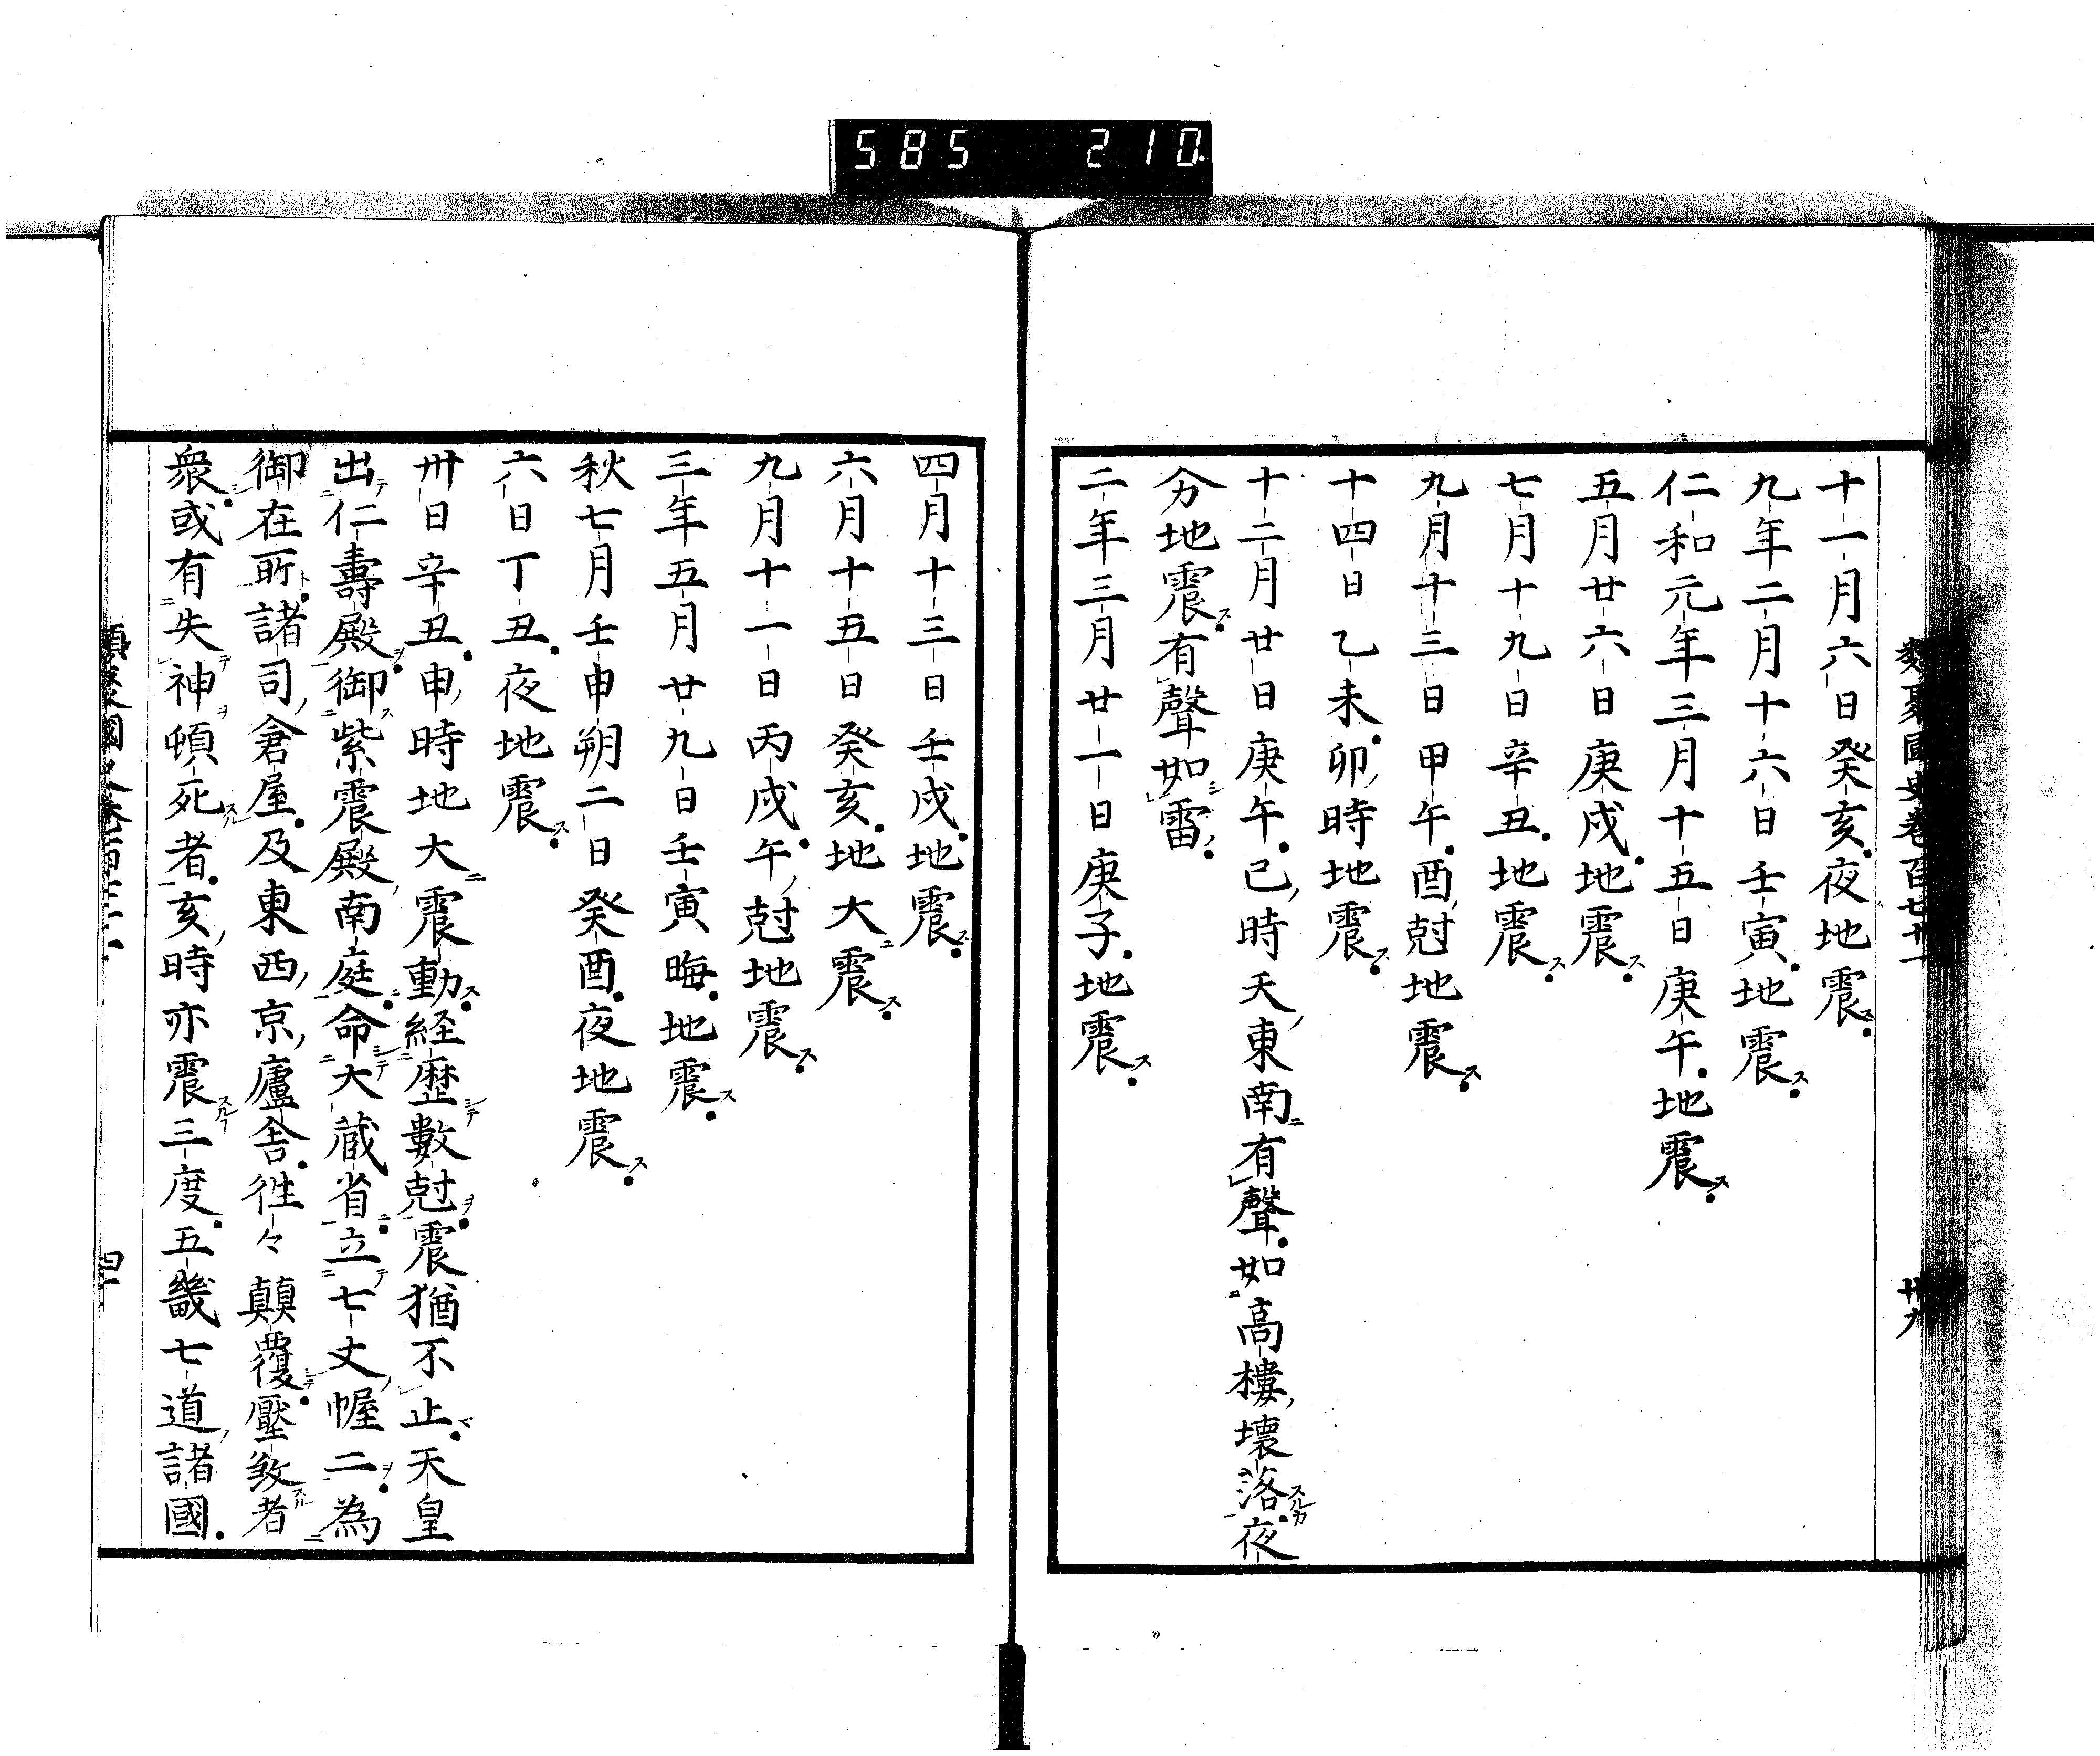 585 210
類聚國史卷百七十一 卅九
十一月六日癸亥夜地震ス
九年二月十六日壬寅地震ス
仁和元年三月十五日庚午地震ス
五月廿六日庚戌地震ス
七月十九日辛丑地震ス
九月十三日甲午酉尅地震ス
十四日乙未卯時地震ス
十二月廿日庚午巳時天東南ニ有聲如高樓壞落スルカ夜
分地震ス有聲如雷
二年三月廿一日庚子地震ス
四月十三日壬戌地震ス
六月十五日癸亥地大ニ震ス
九月十一日丙戌午尅地震ス
三年五月廿九日壬寅晦地震ス
秋七月壬申朔二日癸酉夜地震ス
六日丁丑夜地震ス
卅日辛丑申時地大ニ震動ス経歴シテ數尅ヲ震猶不止マ天皇
出テ仁壽殿ヲ御ス紫震殿南庭ニ命シテ大蔵省ニ立テ七丈幄二ヲ為
御在所ト諸司倉屋及東西京廬舎徃々顛覆シテ壓殺スル者
衆シ或有失テ神ヲ頓死スル者亥時亦震スルヿ三度五畿七道諸國